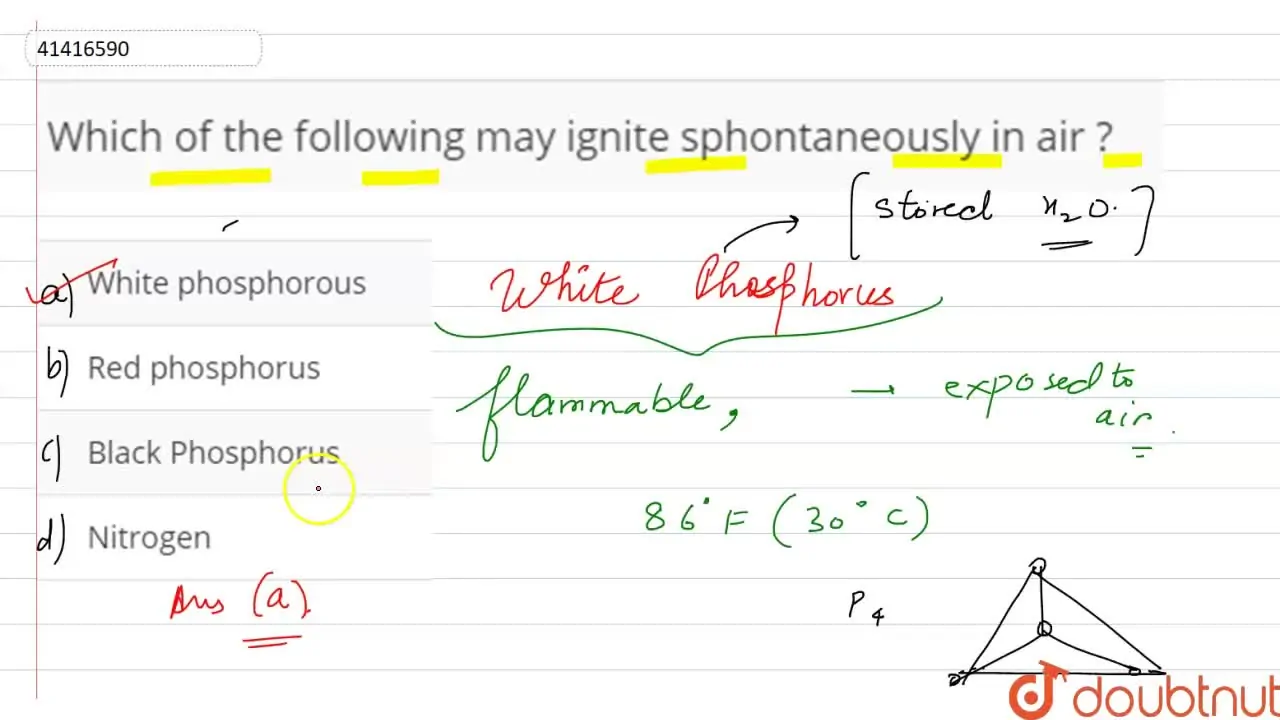 41416590
Which of the following may ignite sphontaneously in air ?
[stored H₂O.]
a) White phosphorous
White Phosphorus
b) Red phosphorus
flammable, → exposed to
air
c) Black Phosphorus
86°F (30°C)
d) Nitrogen
Ans (a).
P₄
doubtnut